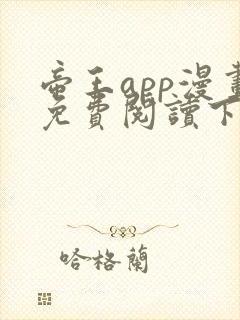 帝王app漫畫
免費閱讀下
哈格蘭